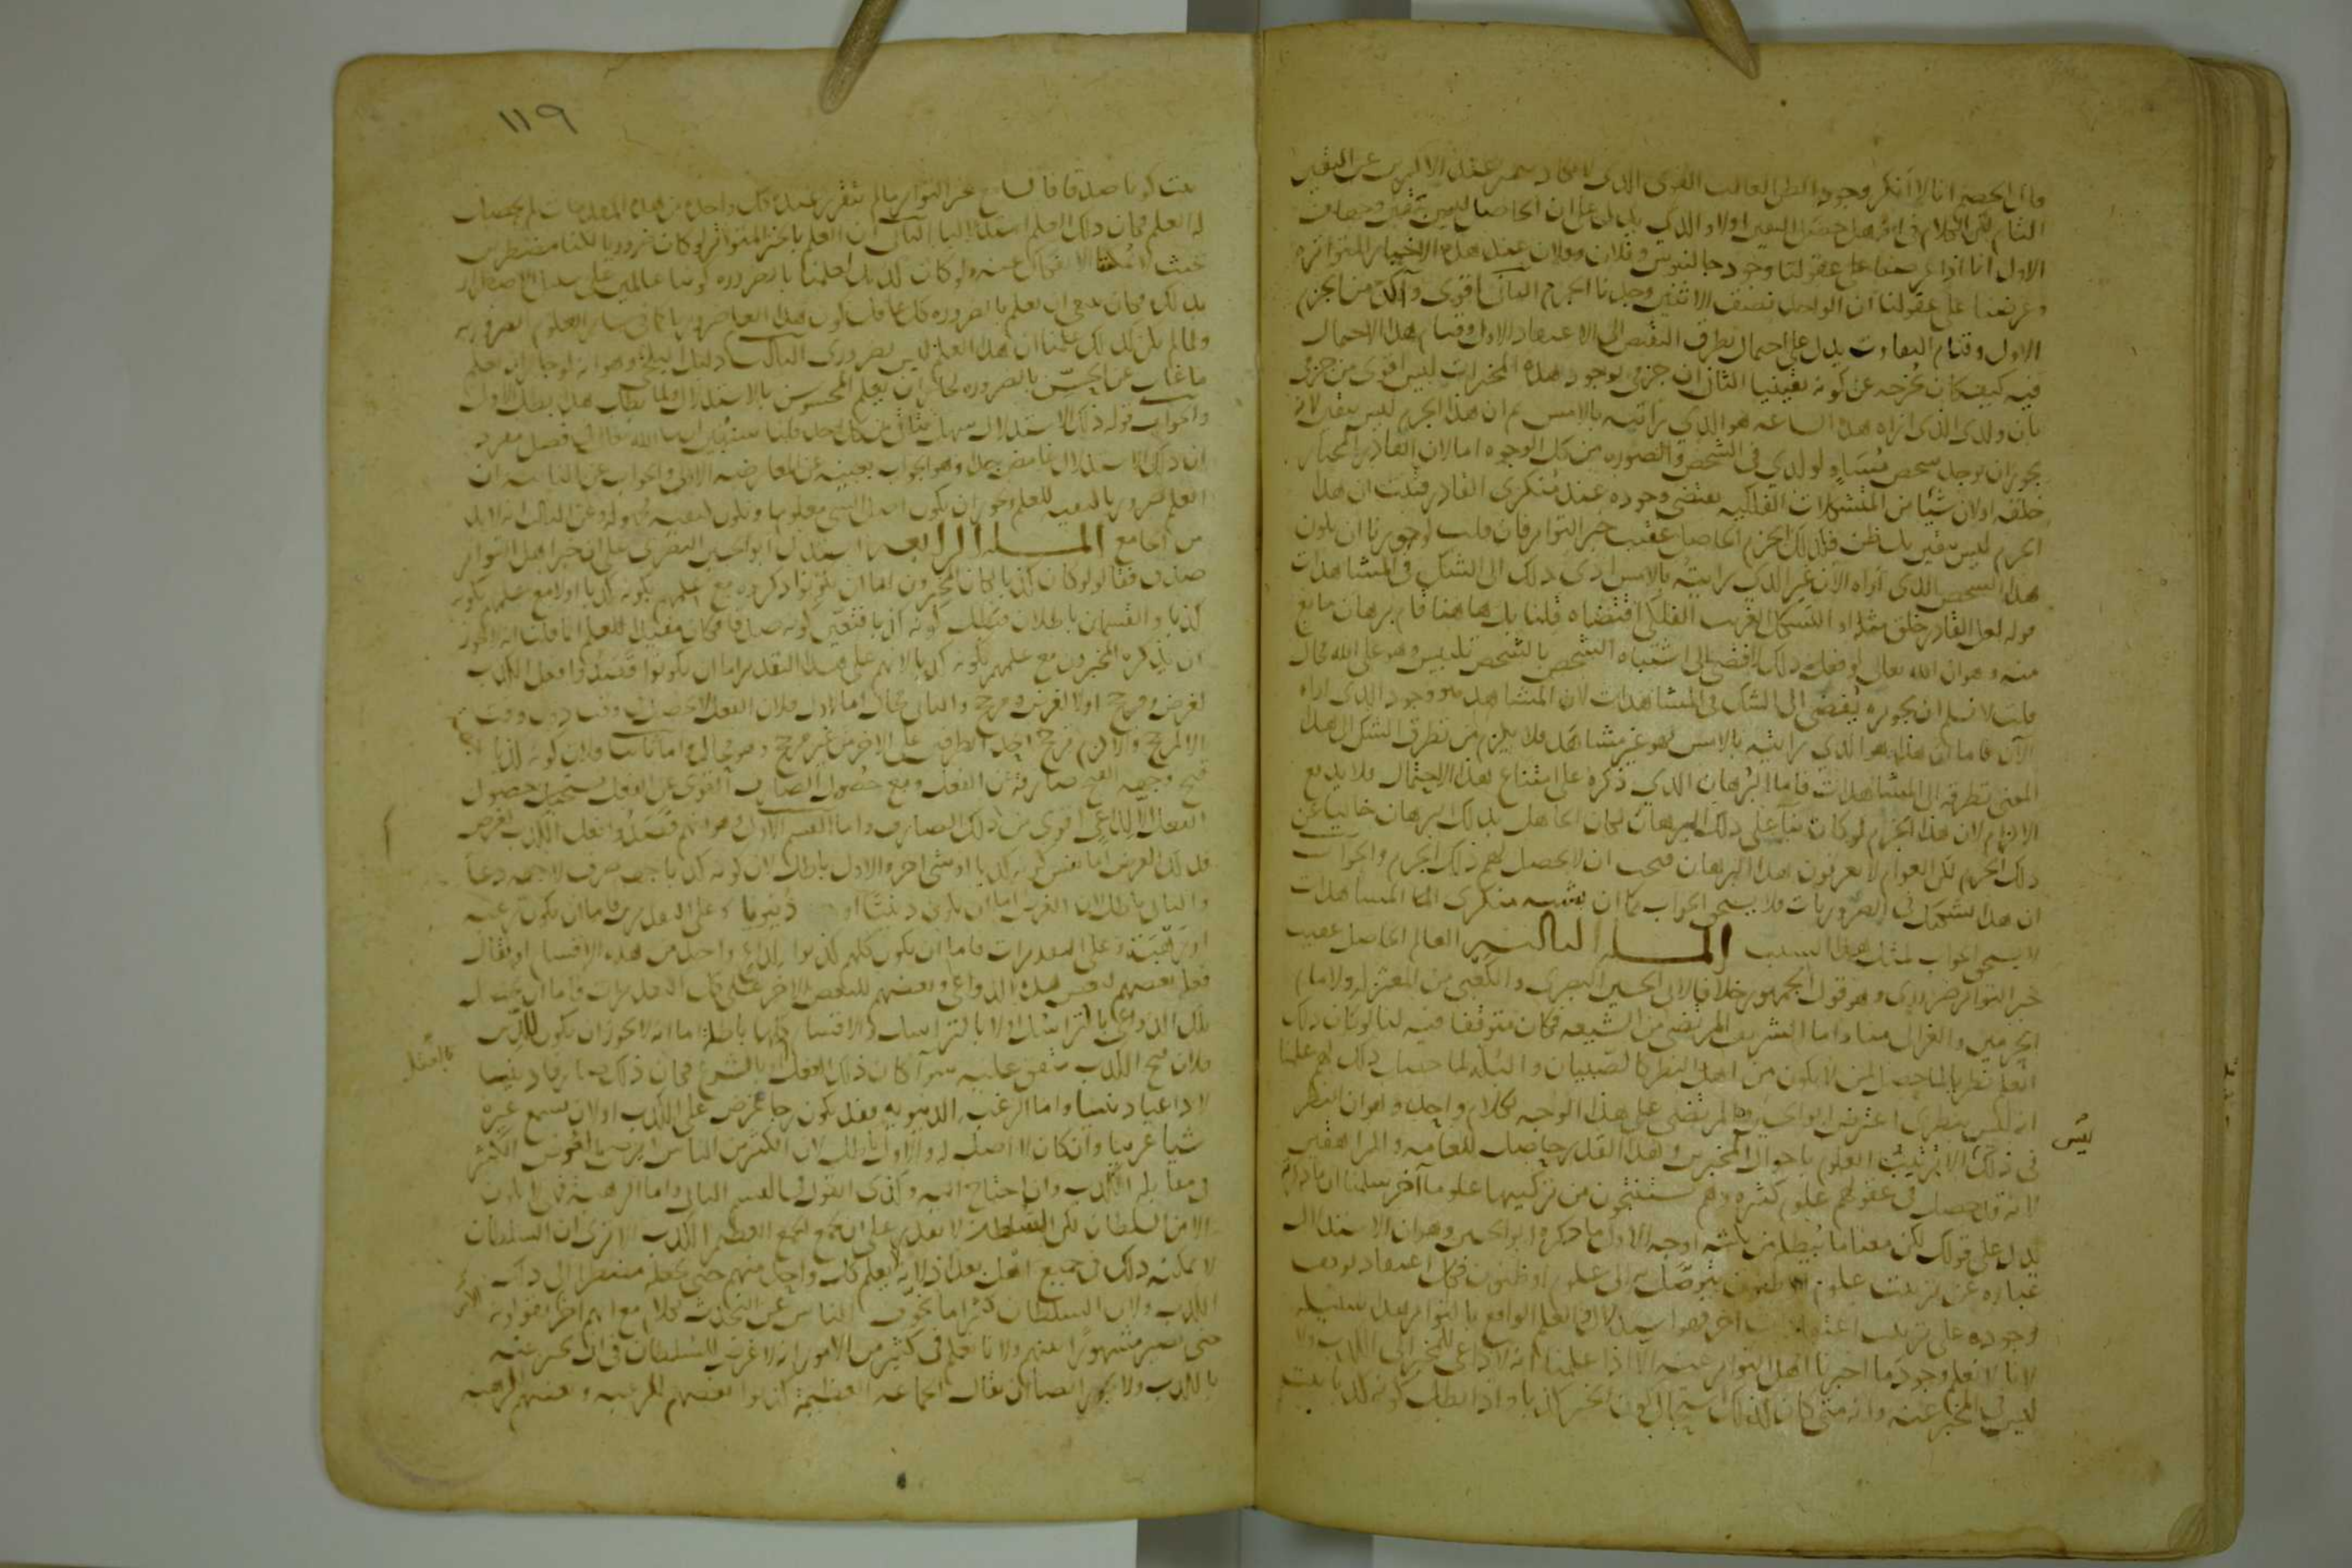 فان الخصم انا لا أنكر وجود الظن الغالب القوي الذي لا يكاد يتميز عند الاكثرين عن اليقين
التام لكن الكلام في انه هل حصل اليقين اولا والذي يدل على ان الحاصل ليس بيقين وجهان
الاول انا اذا عرضنا على عقولنا وجود جالينوس وفلان وفلان عند هذه الاخبار المتواتره
وعرضنا على عقولنا ان الواحد نصف الاثنين وجدنا الجزم الثاني اقوى وآكد من الجزم
الاول وقيام التفاوت يدل على احتمال تطرق النقيض الى الاعتقاد الاول وقيام هذا الاحتمال
فيه كيف كان يخرجه عن كونه يقينيا الثاني ان جزمي بوجود هذه المخبرات ليس اقوى من جزمي
بان ولدي الذي اراه هذه الساعه هو الذي رأيته بالامس ثم ان هذا الجزم ليس بيقين لانه
يجوز ان يوجد شخص مُسَاوٍ لولدي في الشخص والصوره من كل الوجوه اما لان القادر المختار
خلقه اولان شيئا من التشكلات الفلكيه يقتضي وجوده عند مُنكري القادر فثبت ان هذا
الجزم ليس بيقين بل ظن فكذلك الجزم الحاصل عقيب خبر التواتر فان قلت لو جوزنا ان يكون
هذا الشخص الذي اراه الآن غير الذي رايته بالامس ادى ذلك الى الشك في المشاهدات
قوله لعل القادر خلق مثله او الشكل الغريب الفلكي اقتضاه قلنا بل هاهنا قام برهان مانع
منه وهو ان الله تعالى لو فعل ذلك لافضى الى اشتباه الشخص بالشخص تلبيس وهو على الله محال
قلت لا نسلم ان تجويزه يُفضي الى الشك في المشاهدات لان المشاهد هو وجود الذي اراه
الآن فاما ان هذا هو الذي رايته بالامس فهو غير مشاهَد فلا يلزم من تطرق الشك الى هذا
المعنى تطرقه الى المشاهدات فاما البُرهان الذي ذكره على امتناع هذا الاحتمال فلا يدفع
الالزام لان هذا الجزم لو كان بناءً على ذلك البرهان لكان الجاهل بذلك البرهان خاليا عن
ذلك الجزم لكن العوام لا يعرفون هذا البرهان فيجب ان لا يحصل لهم ذلك الجزم والجواب
ان هذا تشكيك في الضروريات فلا يستحق الجواب كما ان شبه منكري المشاهدات
لا يستحق الجواب لمثل هذا السبب المسئلة الثالثة العلم الحاصل عقيب
خبر التواتر ضروري وهو قول الجمهور خلافا لابي الحسين البصري والكعبي من المعتزله ولامام
الحرمين والغزالي منا واما الشريف المرتضى من الشيعه فكان متوقفا فيه لنا لو كان ذلك
العلم نظريا لما حصل لمن لا يكون من اهل النظر كالصبيان والبُله لما حصل ذلك لهم علمنا
انه ليس بنظري اعترض ابو الحسين والمرتضى على هذا الوجه بكلام واحد وهو ان النظر
ليس
في ذلك الا ترتيب العلوم باحوال المخبرين وهذا القدر حاصل للعامه والمراهقين
لانه قد حصل في عقولهم علوم كثيره وهم يستنتجون من تركيبها علوما آخر سلمنا ان ما ذكرته
يدل على قولك لكن معنا ما يُبطله من ثلثه اوجه الاول ما ذكره ابو الحسين وهو ان الاستدلال
عباره عن ترتيب علوم او ظنون يتوصل به الى علوم او ظنون فكل اعتقاد توقف
وجوده على ترتيب اعتقادات اخر فهو استدلالي والعلم الواقع بالتواتر هذا سبيله
لانا لا نعلم وجود ما اخبرنا اهل التواتر عنه الا اذا علمنا انه لا داعي للمخبر الى الكذب ولا
لبس في المخبر عنه وانه متى كان كذلك استحال كون الخبر كذبا واذا بطل كونه كذبا ثبت
١١٩
ثبت كونه صدقا فالسامع بخبر التواتر ما لم يتقرر عنده كل واحد من هذه المقدمات لم يحصل
له العلم فكان ذلك العلم استدلاليا الثاني ان العلم بالخبر المتواتر لو كان ضروريا لكنا مضطرين
بحيث لا يمكننا الانفكاك عنه ولو كان كذلك لعلمنا بالضروره كوننا عالمين على سبيل الاضطرار
بذلك فكان يجب ان يعلم بالضروره كل عاقل كون هذا العلم ضروريا كما في سائر العلوم الضروريه
ولما لم يكن كذلك علمنا ان هذا العلم ليس بضروري الثالث دليل البلخي وهو انه لو جاز ان يعلم
ما غاب عن الحِسّ بالضروره لجاز ان يعلم المحسوس بالاستدلال ولما بطل هذا بطل الاول
والجواب قوله ذلك الاستدلال سهل يتأتى من كل احد قلنا سنبين ان شا الله تعالى في فصل مفرد
ان ذلك الاستدلال غامض جدا وهو الجواب بعينه عن المعارضه الاولى والجواب عن الثانيه ان
العلم ضروريا كيفيه للعلم ويجوز ان يكون اصل الشيء معلوما وتكون كيفيته مجهوله وعن الثالث انه لا بد
من الجامع المسئلة الرابعة استدل ابو الحسين البصري على ان خبر اهل التواتر
صدق فقال لو كان كذبا لكان المخبرون اما ان يكونوا ذكروه مع علمهم بكونه كذبا اولا مع علمهم بكونه
كذبا والقسمان باطلان فبطل كونه كذبا فتعين كونه صدقا فكان مفيدا للعلم انما قلت انه لا يجوز
ان يذكره المخبرون مع علمهم بكونه كذبا لانهم على هذا التقدير اما ان يكونوا قَصَدوا فعل الكذب
لغرض ومرجح اولا لغرض ومرجح والثاني محال اما اولا فلان الفعل لا يحصل في وقت دون وقت
الا لمرجح والا لزم ترجح احد الطرفين على الاخر من غير مرجح وهو محال واما ثانيا فلان كونه كذبا
قبح وجهه القبح صارفة عن الفعل ومع حصول الصارف القوي عن الفعل يستحيل حصول
الفعل الا لداعٍ اقوى من ذلك الصارف واما القسم الاول وهو انهم قصدوا فعل الكذب لغرض
فذلك الغرض اما نفس كونه كذبا او شي اخر والاول باطل لان كونه كذبا جهة صرف لا جهة دعا
والثاني باطل لان الغرض اما ان يكون دينيًا او دُنيويا وعلى التقديرين فاما ان يكون رغبه
او رَهبَة وعلى التقديرات فاما ان يكون كلهم كذبوا لداعٍ واحد من هذه الاقسام او يقال
فعله بعضهم لبعض هذه الدواعي وبعضهم للبعض الاخر وعلى كل التقديرات فاما ان يحصل
تلك الدواعي بالتراسُل اولا بالتراسل والاقسام كلها باطلة اما انه لا يجوز ان يكون للدين
بالعقل
فلان قبح الكذب متفق عليه سوآ كان ذلك العقل او بالشرع فكان ذلك صارفا دينيا
لا داعيا دينيا واما الرغبه الدنيويه فقد يكون رجا عوض على الكذب اولان يسمع غيره
شيا غريبا وان كان لا اصل له والاول باطل لان اكثر من الناس لا يرضى بالعوض الكثير
في مقابلة الكذب وان احتاج اليه وكذى القول في القسم الثاني واما الرهبه فلا يكون
الا من السلطان لكن السلطان لا يقدر على ان يجمع الجمع العظيم على الكذب الا ترى ان السلطان
لا يمكنه ذلك في جميع اهل بغداذ لانه لا يعلم كل واحد منهم حتى يجعله مضطرا الى ذلك
الكذب ولان السلطان كثيرا ما يخوف الناس عن التحدث بكلام مع انهم آخر الامر يقولونه
حتى يصير مشهورًا عنهم ولانا نعلم في كثير من الامور انه لا غرض للسلطان في ان يخبر عنه
بالكذب ولا يجوز ايضا ان يقال الجماعه العظيمة كذبوا بعضهم للرغبه وبعضهم للرهبه